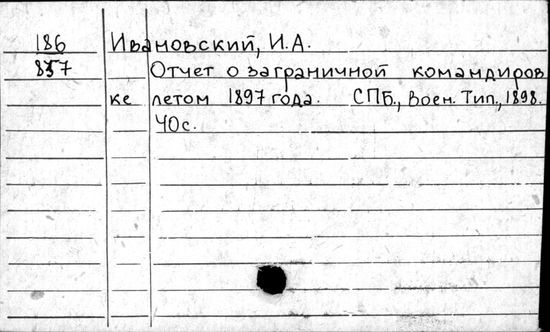 186 Ивановский, И.А.
857 Отчет о заграничной командиров
ке летом 1897 года. СПБ., Воен. Тип., 1898.
40с.